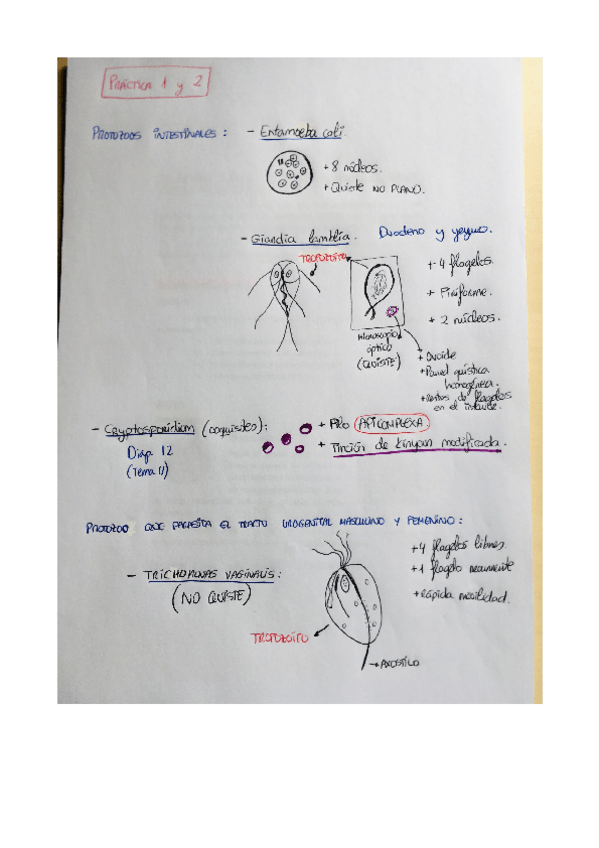 PRÁCTICA 1 y 2
PROTOZOOS INTESTINALES: - Entamoeba coli.
+ 8 núcleos.
+ Quiste NO PLANO.
- Giardia lamblia. Duodeno y yeyuno.
TROFOZOÍTO
+ 4 flagelos.
+ Piriforme.
+ 2 núcleos.
microscopio
óptico
(QUISTE)
+ Ovoide
+ Pared quística
homogénea.
+ Restos de flagelos
en el
- Cryptosporidium (ooquistes):
Diap 12
(Tema 11)
+ Filo APICOMPLEXA.
+ Tinción de Kinyoun modificada.
PROTOZOO QUE PARASITA EL TRACTO UROGENITAL MASCULINO Y FEMENINO:
- TRICHOMONAS VAGINALIS:
(NO QUISTE)
+ 4 flagelos libres.
+ 1 flagelo recurrente
+ rápida movilidad.
TROFOZOÍTO
AXOSTILO